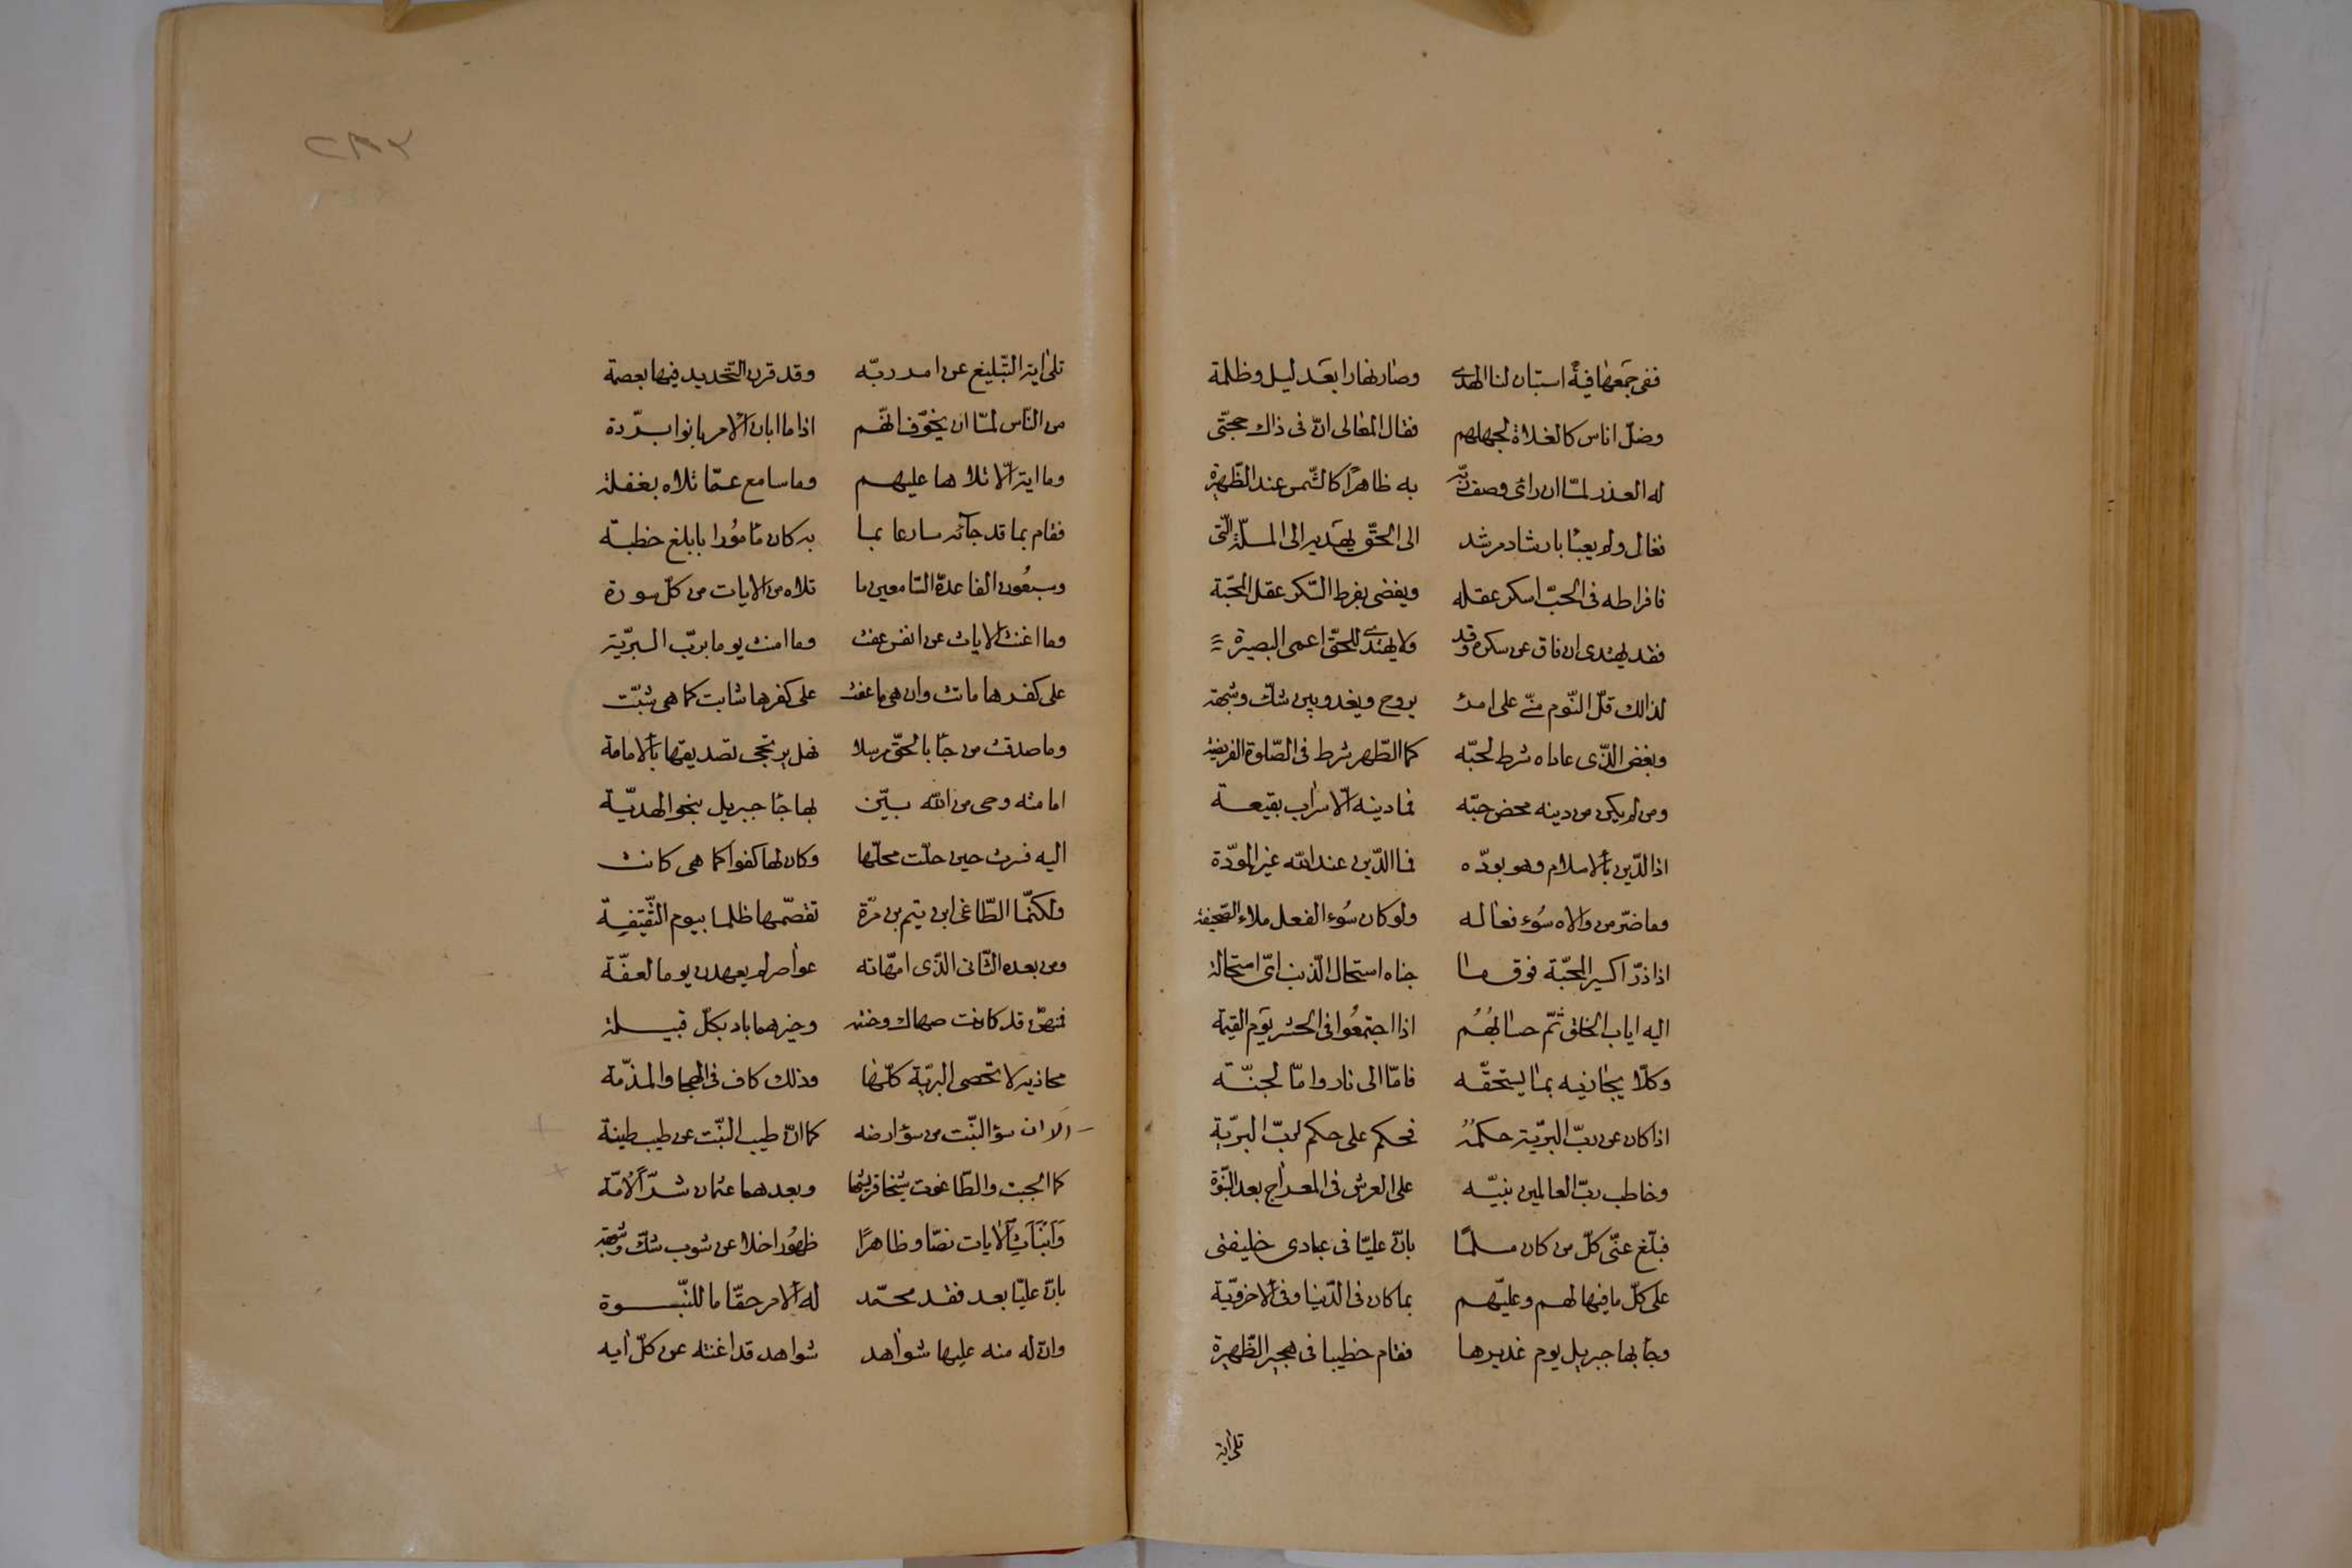 ففى جمعها فيه استبان لنا الهدى وصار نهارا بعد ليل وظلمة
وضلّ اناس كالغلاة لجهلهم فقال المغالى انّ فى ذاك حجّتى
له العذر لمّا ان راى وصف ربّه به ظاهرًا كالشّمس عند الظّهيرة
فغالى ولم يعبأ بارشاد مرشد الى الحقّ يهديه الى الملّة الّتى
فافراطه فى الحبّ اسكر عقله ويفضى بفرط السّكر عقل المحبّة
فقد يهتدى ان فاق عن سكره وقد ولا يهتدى للحقّ اعمى البصيرة
لذالك قلّ النّوم منّى على امرء يروح ويغدو بين شكّ وشبهة
وبغض الذّى عاداه شرط لحبّه كما الطّهر شرط فى الصّلوة الفريضة
ومن لم يكن من دينه محض حبّه فما دينه الّا سراب بقيعة
اذا لدّين بألاسلام وهو بودّه فما الدّين عند الله غير المودّة
وما ضرّ من والاه سُوء فعاله ولو كان سُوء الفعل ملاء الصّحيفة
اذا ذرّ اكسير المحبّة فوق ما جناه استحال الذّنب اىّ استحالة
اليه اياب الخلق ثمّ حسابُهُم اذا اجتمعُوا فى الحشر يوم القيمة
وكلّا يجازيه بما يستحقّه فامّا الى نار وامّا لجنّة
اذا كان عن ربّ البريّة حكمُه فحكم على حكم لربّ البريّة
وخاطب ربّ العالمين نبيّه على العرش فى المعراج بعد النبّوة
فبلّغ عنّى كلّ من كان مسلمًا بانّ عليّا فى عبادى خليفتى
على كلّ ما فيها لهم وعليّهم بما كان فى الدّنيا وفى ألاخرويّة
وجأ بها جبريل يوم غديرها فقام خطيبا فى هجير الظّهيرة
تلى اية
تلى اية التّبليغ عن امر ربّه وقد قرن التّحديد فيها بعصمة
من النّاس لمّا ان يخوّف انهّم اذا ما ابان ألامر بانوا بردّة
وما اية الّا تلاها عليهم وما سامع عمّا تلاه بغفلة
فقام بما قد جآئه سارعا بما به كان مأمُورا بابلغ خطبة
وسبعُون الفا عدّة السّامعين ما تلاه من الايات من كلّ سورة
وما اغنت الايات عن انفس عفت وما امنت يوما بربّ البريّة
على كفرها ماتت وان هى ما عفت على كفرها شابت كما هى شبّت
وما صدقت من جأ بالحقّ مرسلا فهل يرتجى تصديقها بألامامة
امامته وحى من الله بيّن بها جأ جبريل بنحو الهديّة
اليه سرت حين حلّت محلّها وكان لها كفوا كما هى كانت
ولكنّما الطّاغى ابن تيم بن مرّة تقصّمها ظلما بيوم الثّقيفة
ومن بعده الثّانى الذّى امهّاته عواهر لم يعهدن يوما لعفّة
فمنهنّ قد كانت صهاك وخبثه وخبرهما باد بكلّ قبيلة
مخاذيه لا تحصى البريّة كلّها وذلك كاف فى الهجا والمذمّة
الا ان سؤ النّبت من سؤ ارضه كما انّ طيب النّبت عن طيب طينة
كما الجبت والطّاغوت شيخا قريشها وبعدهما عثمان شرّ ألامّة
وانبأت ألايات نصّا وظاهرًا ظهُورا خلا عن شوب شكّ وشبهة
بانّ عليّا بعد فقد محمّد له ألامر حقّا ما للنبّوة
وانّ له منه عليها شواهد شواهد قد اغنته عن كلّ ايه